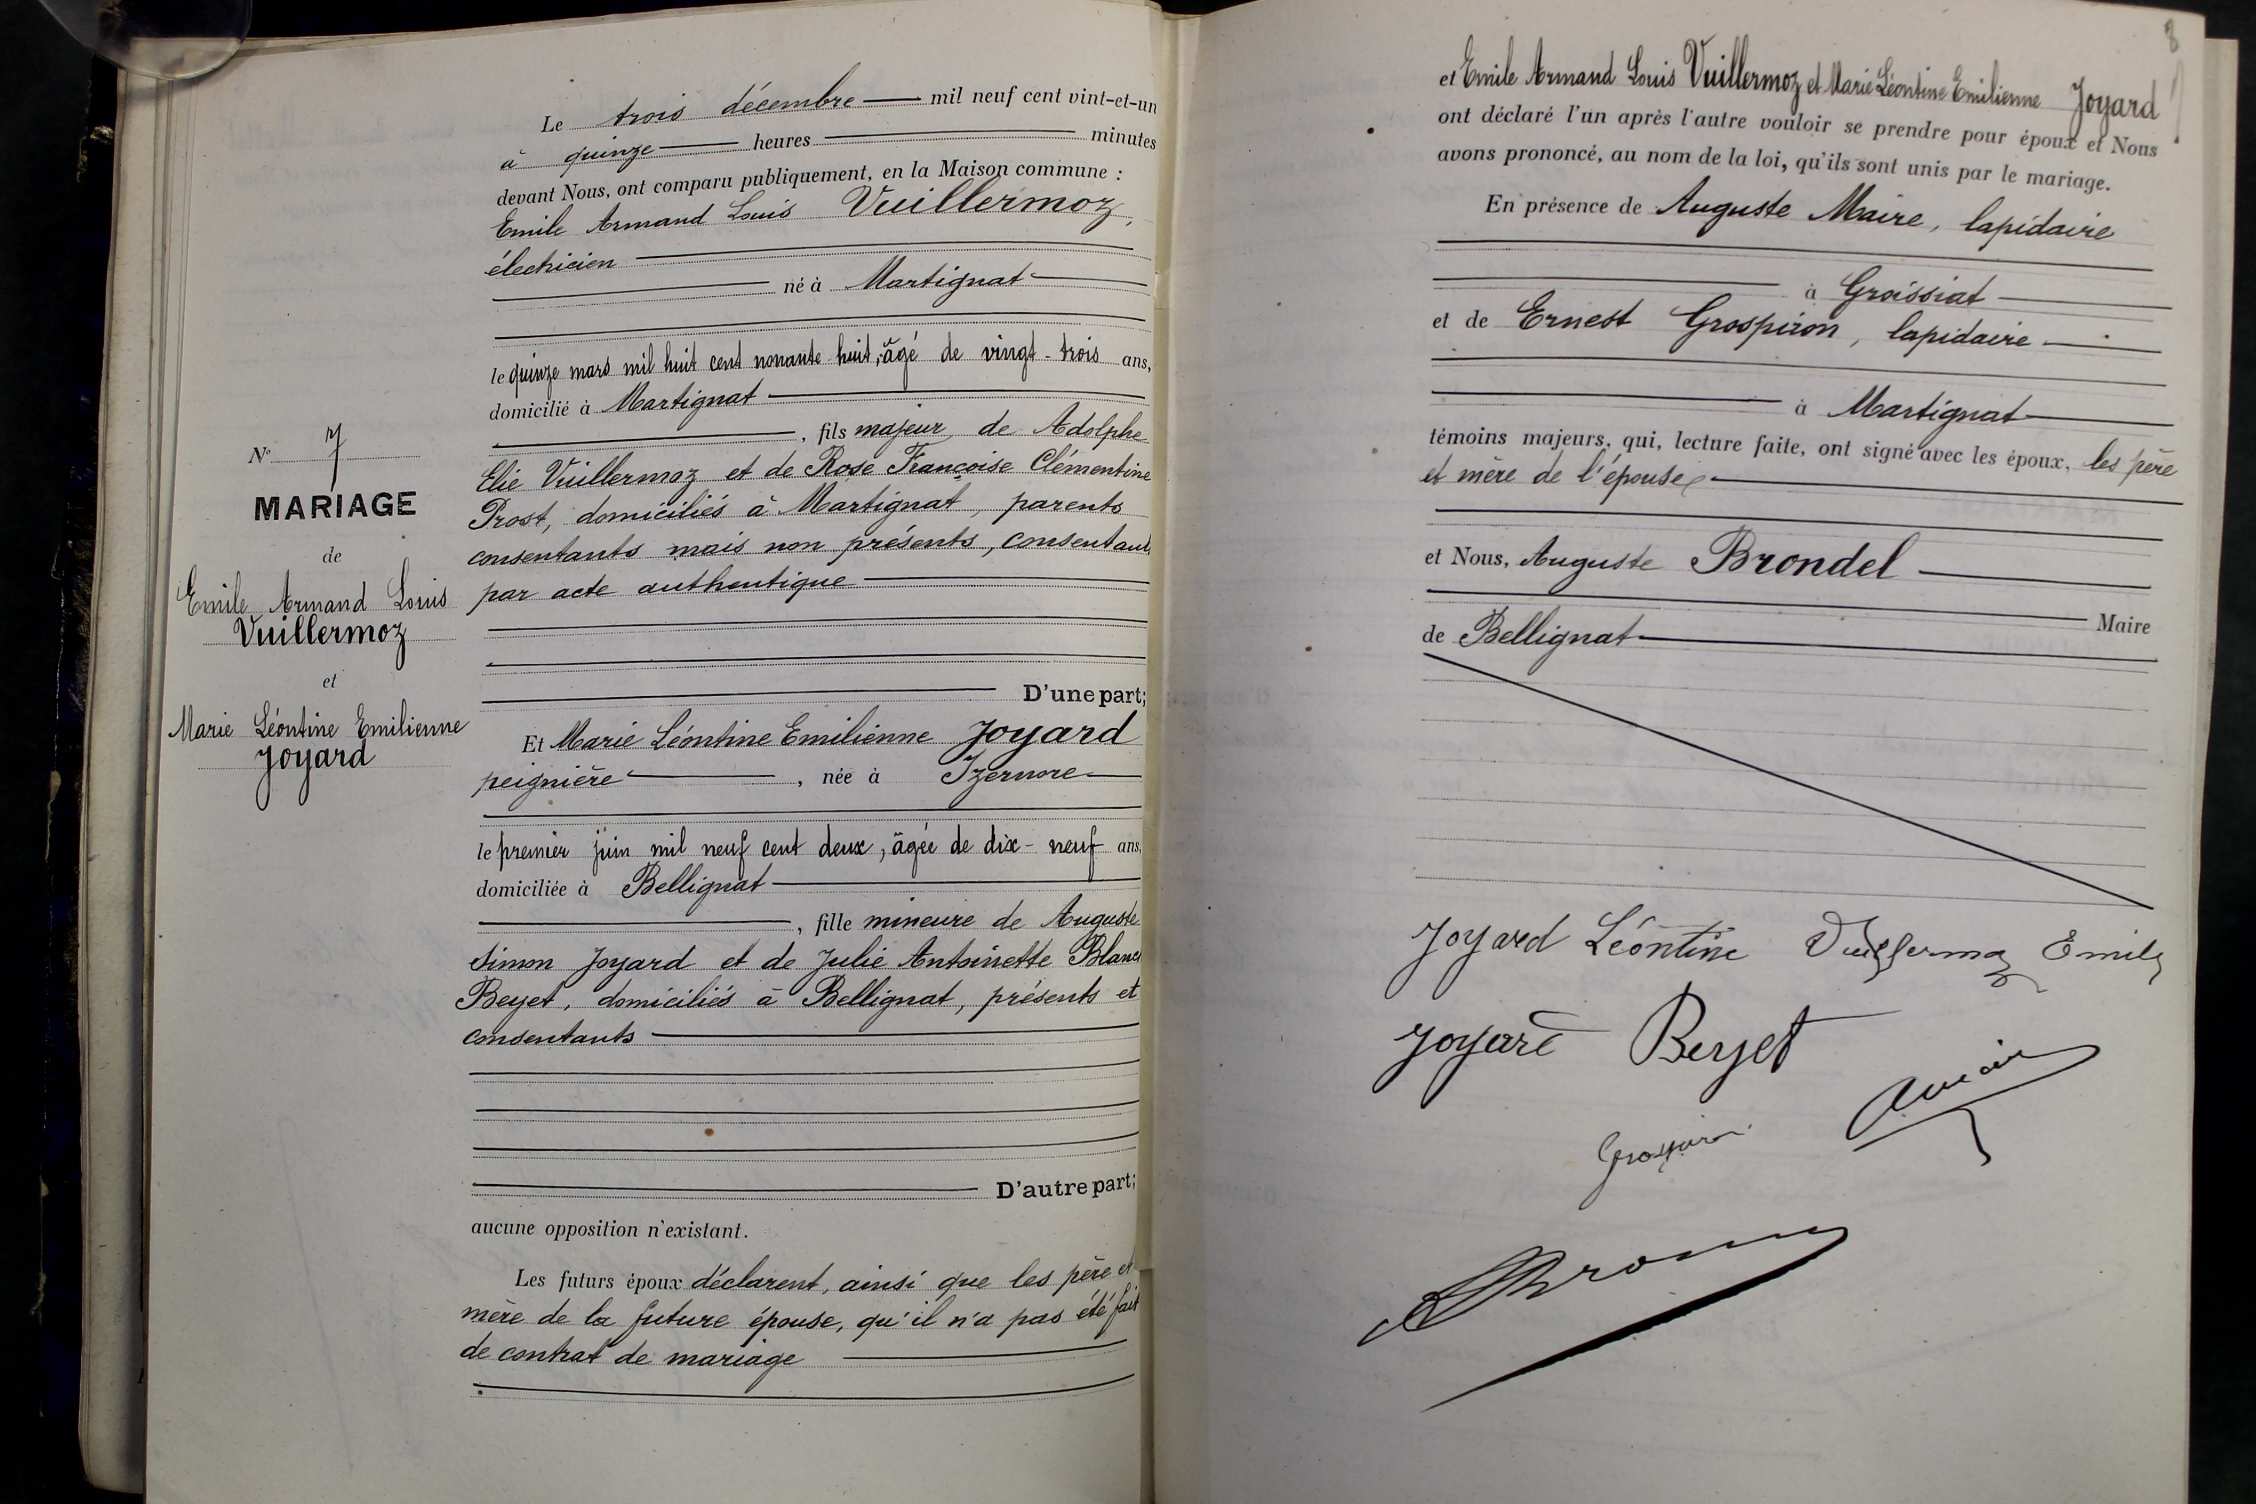 Le trois décembre mil neuf cent vint-et-un
à quinze heures minutes
devant Nous, ont comparu publiquement, en la Maison commune :
Emile Armand Louis Vuillermoz,
électricien
né à Martignat
le quinze mars mil huit cent nonante huit, âgé de vingt-trois ans,
domicilié à Martignat
, fils majeur de Adolphe
Elie Vuillermoz et de Rose Françoise Clémentine
Prost, domiciliés à Martignat, parents
consentants mais non présents, consentant
par acte authentique
D'une part;
Et Marie Léontine Emilienne Joyard
peignière , née à Izernore
le premier juin mil neuf cent deux, âgée de dix-neuf ans,
domiciliée à Bellignat
, fille mineure de Auguste
Simon Joyard et de Julie Antoinette Blanc
Beyet, domiciliés à Bellignat, présents et
consentants
D'autre part;
aucune opposition n'existant.
Les futurs époux déclarent, ainsi que les père et
mère de la future épouse, qu'il n'a pas été fait
de contrat de mariage
N° 7
MARIAGE
de
Emile Armand Louis
Vuillermoz
et
Marie Léontine Emilienne
Joyard
8
et Emile Armand Louis Vuillermoz et Marie Léontine Emilienne Joyard
ont déclaré l'un après l'autre vouloir se prendre pour époux et Nous
avons prononcé, au nom de la loi, qu'ils sont unis par le mariage.
En présence de Auguste Maire, lapidaire
à Groissiat
et de Ernest Grospiron, lapidaire
à Martignat
témoins majeurs, qui, lecture faite, ont signé avec les époux, les père
et mère de l'épouse
et Nous, Auguste Brondel
Maire
de Bellignat
Joyard Léontine Vuillermoz Emile
Joyard Beyet
Grospiron